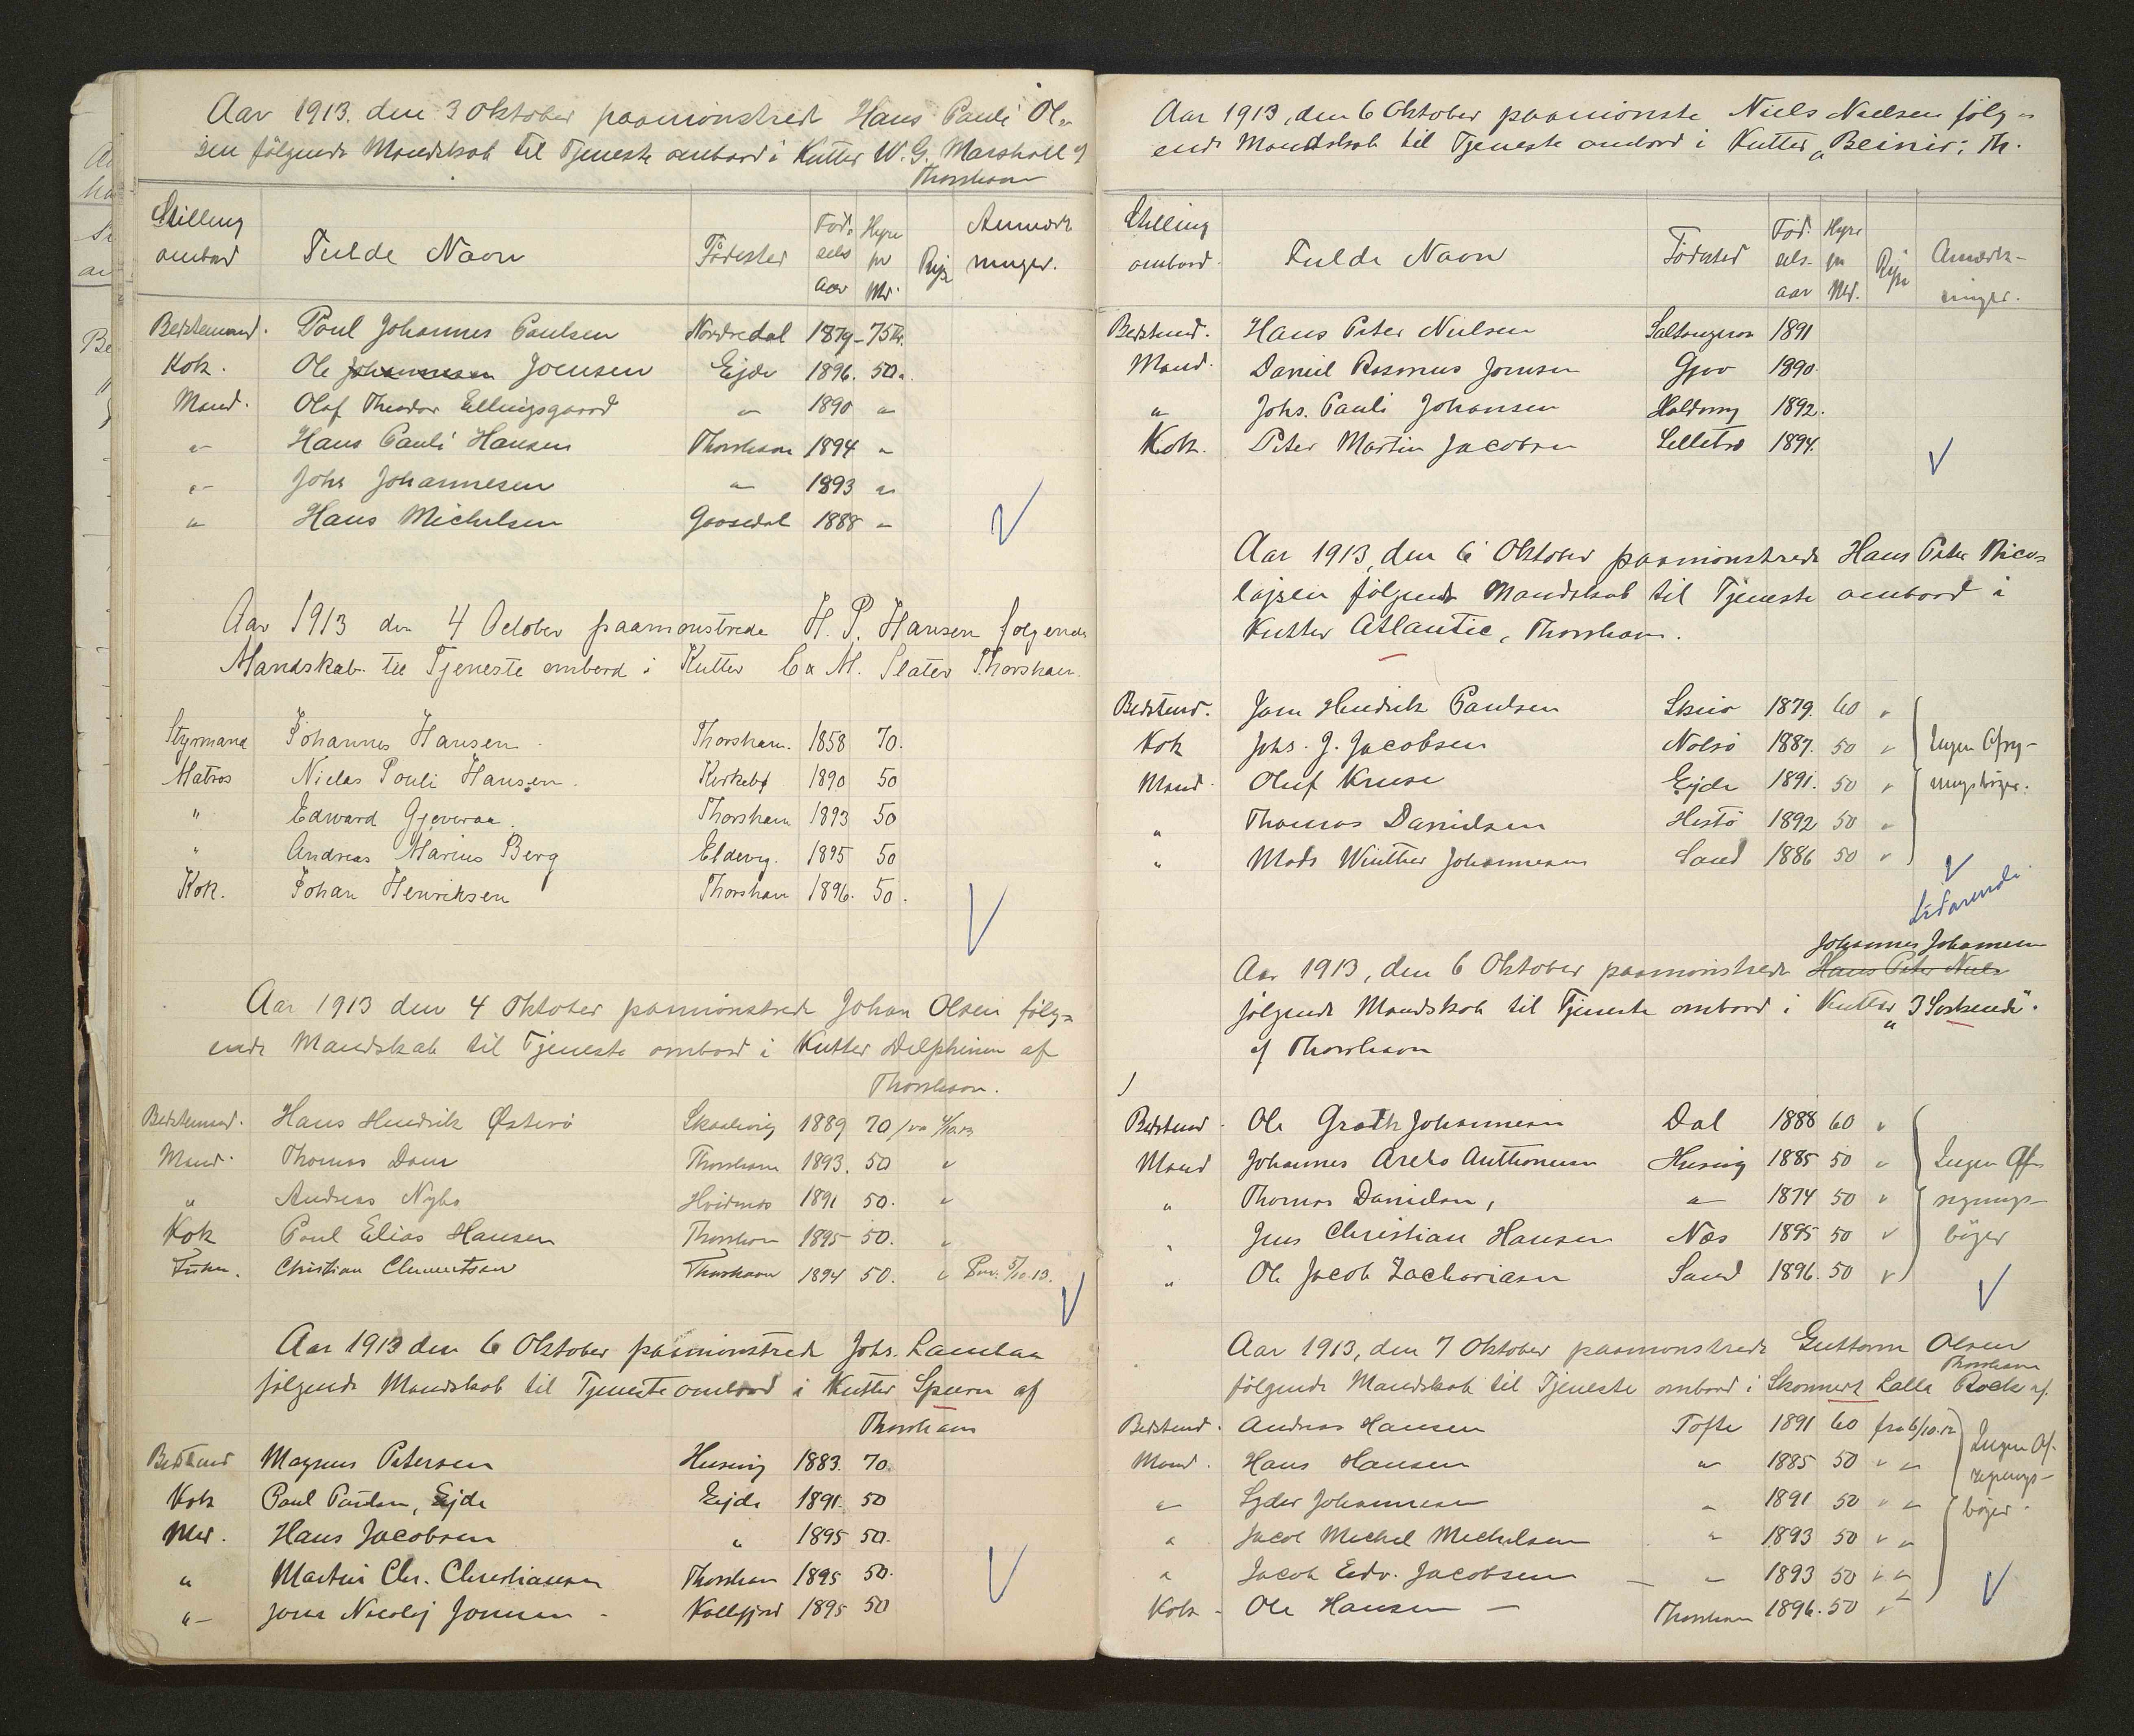 Aar 1913. den 3 Oktober paamönstred Hans Pauli Ol-
sen fölgende Mandskab til Tjeneste ombord i Kutter W. G. Marshall af
Thorshavn
Stilling ombord Fulde Navn Födested Föd-sels aar Hyre pr Md. Rejse Anmærkninger.
Bedstemand. Poul Johannes Paulsen Nordredal 1879 - 75 Kr.
Kok. Ole Johannesen Joensen Ejde 1896. 50 "
Mand. Olaf Theodor Ellingsgaard " 1890 "
" Hans Pauli Hansen Thorshavn 1894 "
" Johs Johannesen " 1893 "
" Hans Michelsen Gaasedal 1888 "
Aar 1913 den 4 October paamonstrede H. P. Hansen folgende
Mandskab til Tjeneste ombord i Kutter C & M. Slater Thorshavn.
Styrmand Johannes Hansen. Thorshavn. 1858 70.
Matros Niclas Pouli Hansen. Kirkebø 1890 50
" Edward Gjøveraa. Thorshavn 1893 50
" Andreas Marius Berg Eldevig. 1895 50
Kok. Johan Henriksen Thorshavn 1896. 50.
Aar 1913 den 4 Oktober paamönstrede Johan Olsen fölg-
ende Mandskab til Tjeneste ombord i Kutter Delphinen af
Thorshavn.
Bedstemand. Hans Hendrik Østerö Skaalevig 1889 70 fra 4/10.13
Mand. Thomas Dam Thorshavn 1893. 50 "
" Andreas Nybo Hvidenæs 1891 50. "
Kok Poul Elias Hansen Thorshavn 1895 50. "
Christian Clementsen Thorshavn 1894 50. " 5/10.13.
Aar 1913 den 6 Oktober paamönstrede Johs. Lambaa
fölgende Mandskab til Tjeneste ombord i Kutter Spurn af
Thorshavn
Bedstmd Magnus Petersen Husevig 1883. 70.
Kok Poul Poulsen, Ejde Ejde 1891. 50
Md. Hans Jacobsen " 1895 50.
" Martin Chr. Christiansen Thorshavn 1895 50.
" Jona Nicolaj Joensen - Kollefjord 1895 50
Aar 1913, den 6 Oktober paamönste Niels Nielsen fölg-
ende Mandskab til Tjeneste ombord i Kutter „Beinir" Th.
Stilling ombord. Fulde Navn Födested Föd-sels-aar Hyre pr Md. Rejse Anmærk-ninger.
Bedstmd. Hans Peter Nielsen Saltangeraa 1891
Mand. Daniel Rasmus Joensen Gjov 1890.
" Johs. Pauli Johansen Haldorsvig 1892.
Kok. Peter Martin Jacobsen Selletræ 1894.
Aar 1913, den 6 Oktober paamönstrede Hans Peter Nico-
lajsen fölgende Mandskab til Tjeneste ombord i
Kutter Atlantic, Thorshavn.
Bedstmd. Joen Hendrik Paulsen Skuö 1879. 60 "
Kok Johs. J. Jacobsen Nolsö 1887. 50 " Ingen Afreg-
Mand. Oluf Kruse Ejde 1891. 50 " ningsböger.
" Thomas Danielsen Hestö 1892 50 "
" Mads Winther Johannesen Sand 1886 50 "
Johannes Johannesen
Aar 1913, den 6 Oktober paamönstrede Hans Peter Niels
fölgende Mandskab til Tjeneste ombord i Kutter „3 Söskende".
af Thorshavn
Bedstmd. Ole Groth Johannesen Dal 1888 60 "
Mand Johannes Arelo Anthonisen Husevig 1885 50 " Ingen Af-
" Thomas Danielsen, " 1874 50 " regnings-
" Jens Christian Hansen Næs 1895 50 " böger
" Ole Jacob Zachariasen Sand 1896. 50 "
Aar 1913, den 7 Oktober paamönstrede Guttorm Olsen
Thorshavn
fölgende Mandskab til Tjeneste ombord i Skonnert Lalla Rock af.
Bedstmd. Andreas Hansen Tofte 1891 60 fra 6/10.13 Ingen Af-
Mand. Hans Hansen " 1885 50 " " regnings-
" Lyder Johannesen " 1891 50 " " böger.
" Jacob Michel Michelsen " 1893 50 " "
" Jacob Edv. Jacobsen — " 1893 50 " "
Kok - Ole Hansen — Thorshavn 1896. 50 " "